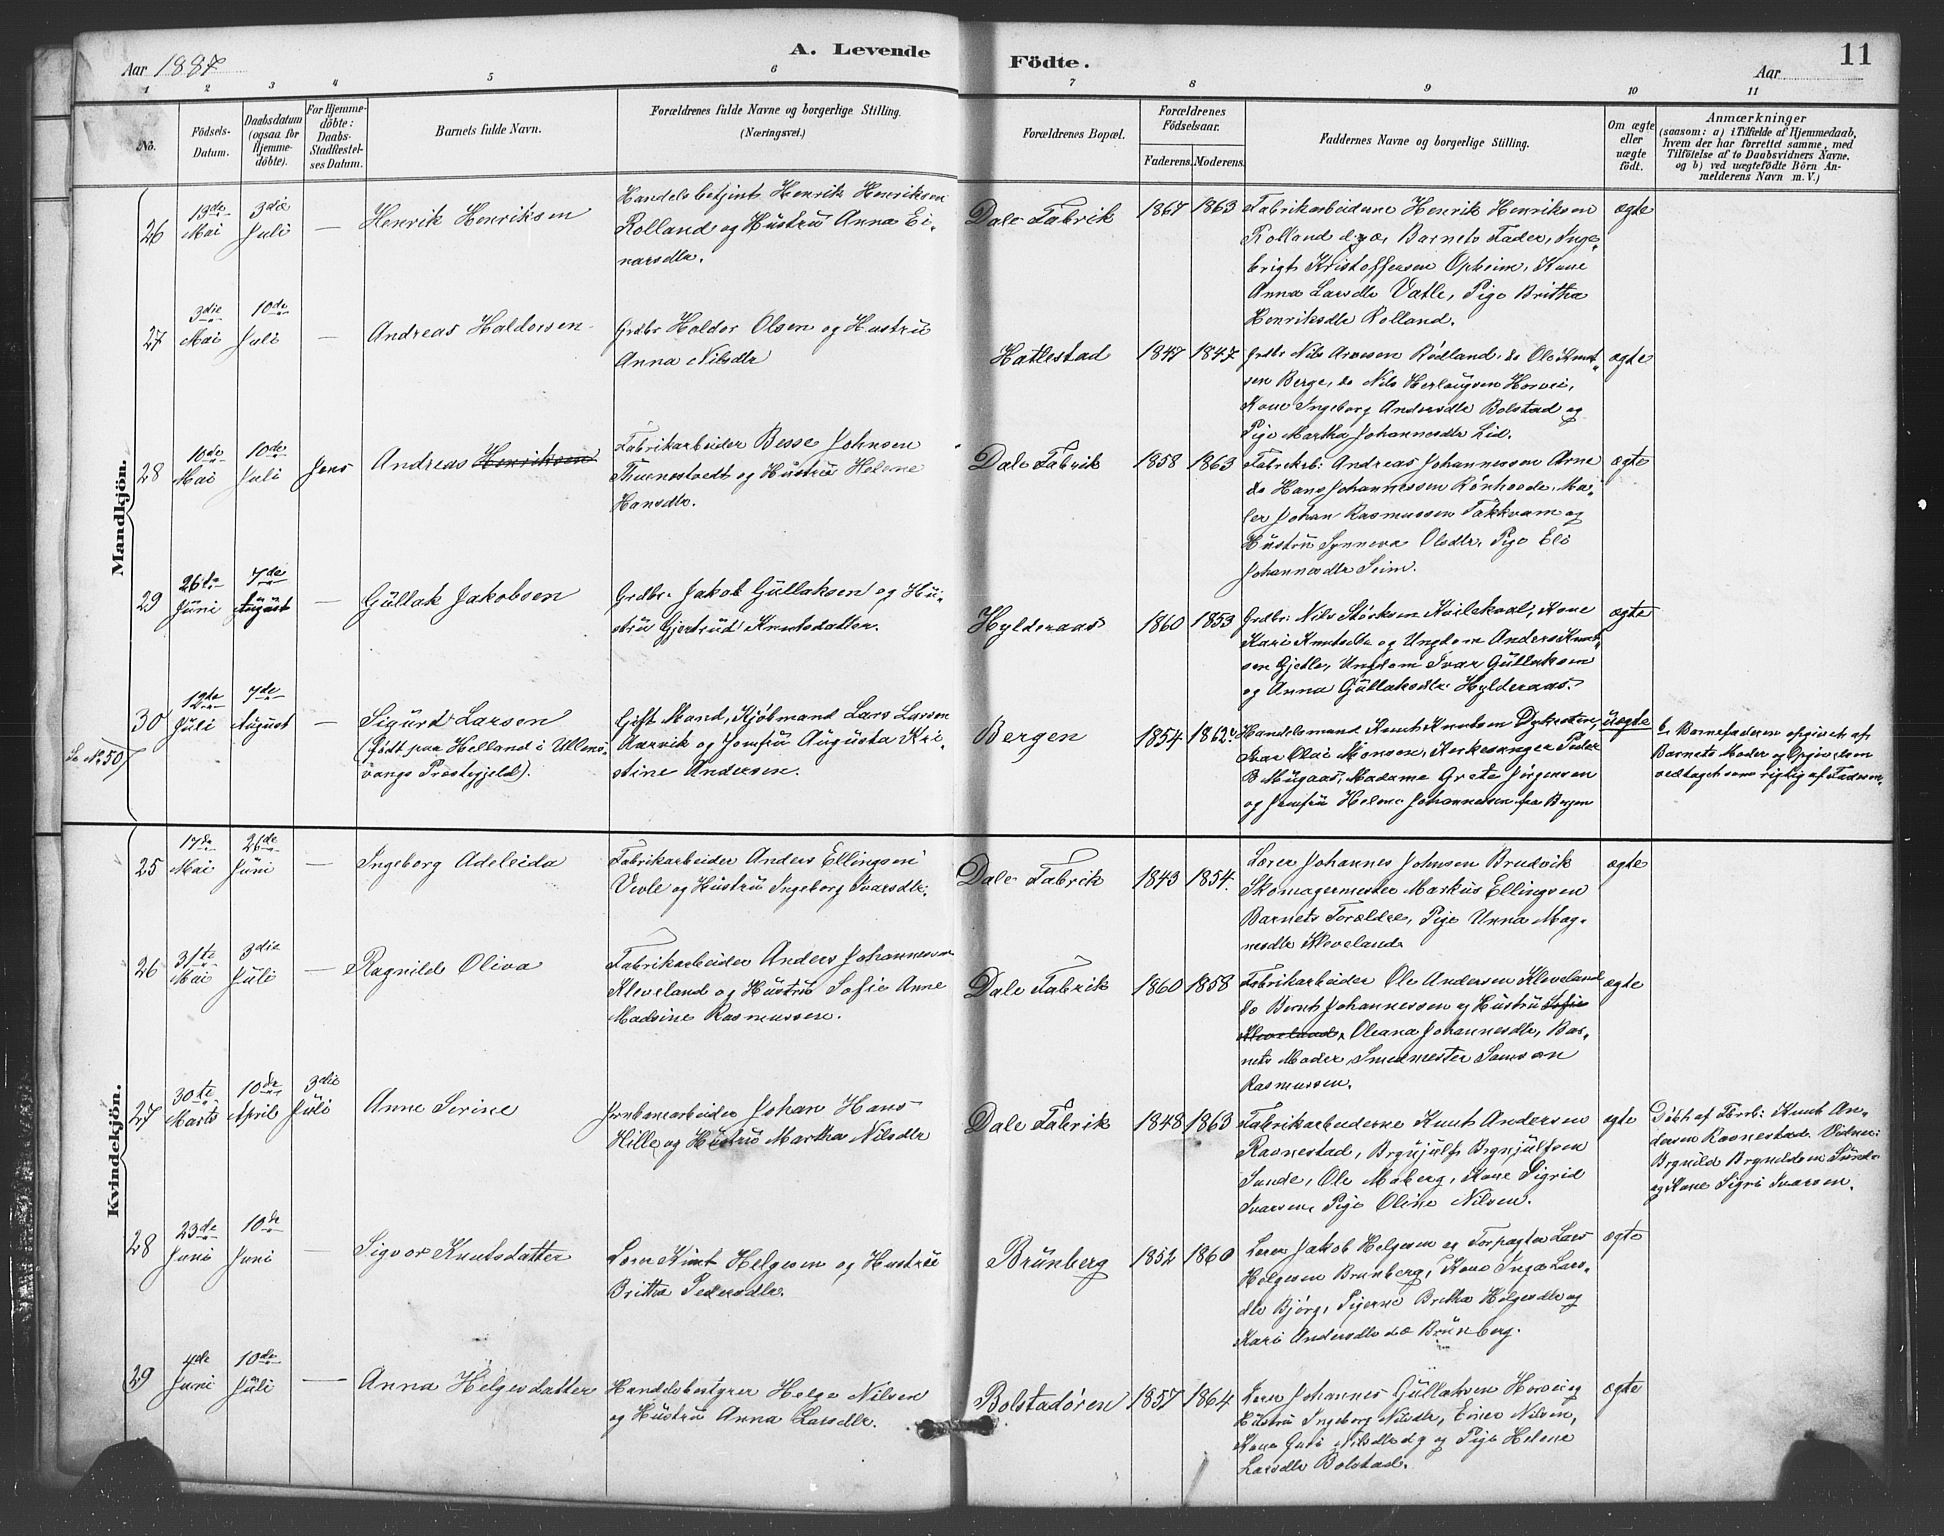 Aar 1887
A. Levende Födte.
Aar
11
1 2 3 4 5 6 7 8 9 10 11
No.
Födsels-Datum.
Daabsdatum (ogsaa for Hjemme-döbte).
For Hjemme-döbte: Daabs-Stadfæstel-ses Datum.
Barnets fulde Navn.
Forældrenes fulde Navne og borgerlige Stilling.
(Næringsvei.)
Forældrenes Bopæl.
Forældrenes Födselsaar.
Faderens. Moderens.
Faddernes Navne og borgerlige Stilling.
Om ægte eller uægte födt.
Anmærkninger
(saasom: a) i Tilfælde af Hjemmedaab, hvem der har forrettet samme, med Tilföielse af to Daabsvidners Navne, og b) ved uægtefödte Börn Anmelderens Navn m. V.)
Mandkjön.
26 13de Mai 3die Juli — Henrik Henriksen
Handelsbetjent Henrik Henriksen
Rolland og Hustru Anna Ei-
narsdtr.
Dale Fabrik 1867 1863
Fabrikarbeiderne Henrik Henriksen
Rolland d.y. Barnets Fader, Inge-
brigt Kristoffersen Opheim, Kone
Anna Larsdtr Vatle, Pige Britha
Henriksdtr Rolland.
ægte
27 3die Mai 10de Juli — Andreas Haldorsen
Grdbr Haldor Olsen og Hustru
Anna Nilsdtr
Hatlestad 1847 1847
Grdbr Nils Arnesen Rödland, do Ole Knut-
sen Berge, do Nils Herlaugsen Horvei,
Kone Ingeborg Andersdtr Bolstad og
Pige Martha Johannesdtr Lid.
ægte
28 10de Mai 10de Juli Jens Andreas Henriksen
Fabrikarbeider Besse Johnsen
Thuenestvedt og Hustru Helene
Hansdtr.
Dale Fabrik 1858 1863
Fabrikarb: Andreas Johannessen Arne
do Hans Johannessen Rönhovde, Ma-
ler Johan Rasmussen Takkvam og
Hustru Synneva Olsdtr, Pige Eli
Johannesdtr Seim.
ægte
29 26de Juni 7de August — Gullak Jakobsen
Grdbr. Jakob Gullaksen og Hu-
stru Gjertrud Knutsdatter.
Hylderaas 1860 1853
Grdbr: Nils Störksen Kvilekval, Kone
Kari Knutsdtr og Ungdom Anders Knut-
sen Gjetle, Ungdom Ivar Gullaksen
og Anna Gullaksdtr Hylderaas.
ægte
30 12te Juli 7de August — Sigurd Larsen
(Se No 50)
(Födt paa Helland i Ullens-
vangs Præstegjeld).
Gift Mand, Kjöbmand Lars Larsen
Aarvik og Jomfru Augusta Kri-
stine Andersen.
Bergen 1854 1862
Handelsmand Knut Knutsen Dyvesten,
Ivar Olai Monsen, Kirkesanger Peder
B Mugaas, Madame Grete Jörgensen
og Jomfru Helene Johannessen fra Bergen
uægte
b. Barnefaderen opgivet af
Barnets Moder og Opgivelsen
vedtaget som rigtig af Faderen.
Kvindekjön.
25 17de Mai 26de Juni — Ingeborg Adeleida
Fabrikarbeider Anders Ellingsen
Vevle og Hustru Ingeborg Ivarsdtr.
Dale Fabrik 1843 1854.
Lærer Johannes Johnsen Brudvik
Skomagermester Markus Ellingsen
Barnets Forældre, Pige Unna Mag-
nesdtr Kleveland
ægte
26 31te Mai 3die Juli — Ragnild Oliva
Fabrikarbeider Anders Johannessen
Kleveland og Hustru Sofie Anne
Madsine Rasmussen.
Dale Fabrik 1860 1858
Fabrikarbeider Ole Andersen Kleveland
do Bernt Johannessen og Hustru Sofie
Kleveland, Oleana Johannesdtr, Bar-
nets Moder, Smedmester Samson
Rasmussen.
ægte
27 30te Marts 10de April 3die Juli Anne Serine
Jernbanearbeider Johan Hans
Hille og Hustru Martha Nilsdtr
Dale Fabrik 1848 1863
Fabrikarbeiderne Knut Andersen
Ravnestad, Brynjulf Brynjulfsen
Sande, Ole Moberg, Kone Sigrid
Ivarsen, Pige Oline Nilsen.
ægte
Döbt af Farb: Knut An-
dersen Ravnestad. Vidner:
Brynild Brynildsen Sunde
og Kone Sigri Ivarsen.
28 23de Juni 10de Juni — Sigvor Knutsdatter
Knut Helgesen og Hustru
Britha Pedersdtr.
Brünberg 1852 1860
Lærer Jakob Helgesen og Forpagter Lars
Helgesen Brunberg, Kone Inga Lars-
dtr Bjørg, Pigerne Britha Helgesdtr og
Kari Andersdtr Brünberg.
ægte
29 4de Juni 10de Juli — Anna Helgesdatter
Handelsbestyrer Helge Nilsen
og Hustru Anna Larsdtr.
Bolstadøren 1857 1864
Lærer Johannes Gullaksen Horvei og
Hustru Ingeborg Nilsdtr, Einer Nilsen,
Kone Guri Nilsdtr og Pige Helene
Larsdtr Bolstad.
ægte